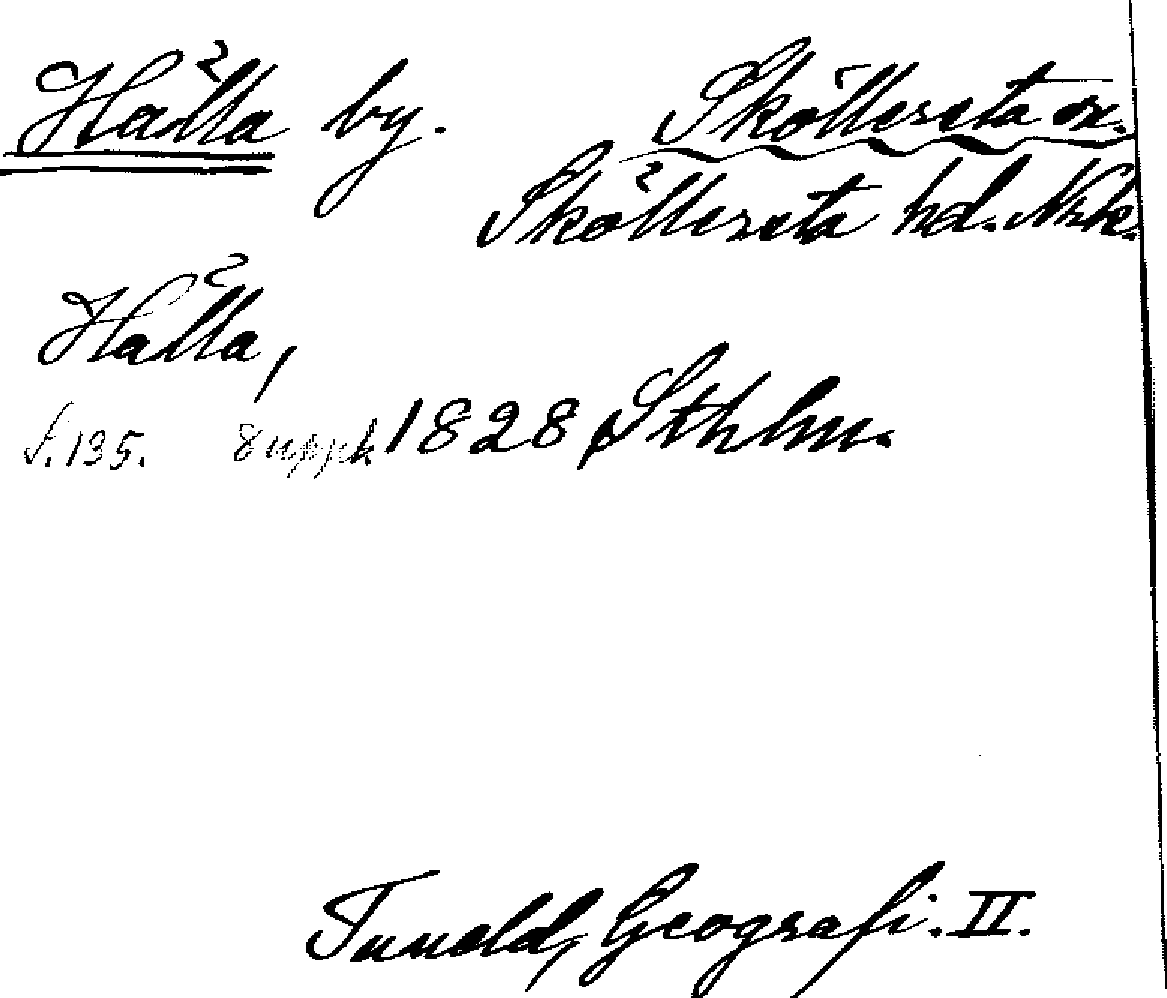 Hälla by. Sköllersta sn.
Sköllersta hd. Nrk.
Hälla,
s. 135. 8 uppl. 1828, Sthlm.
Tuneld, Geografi. II.